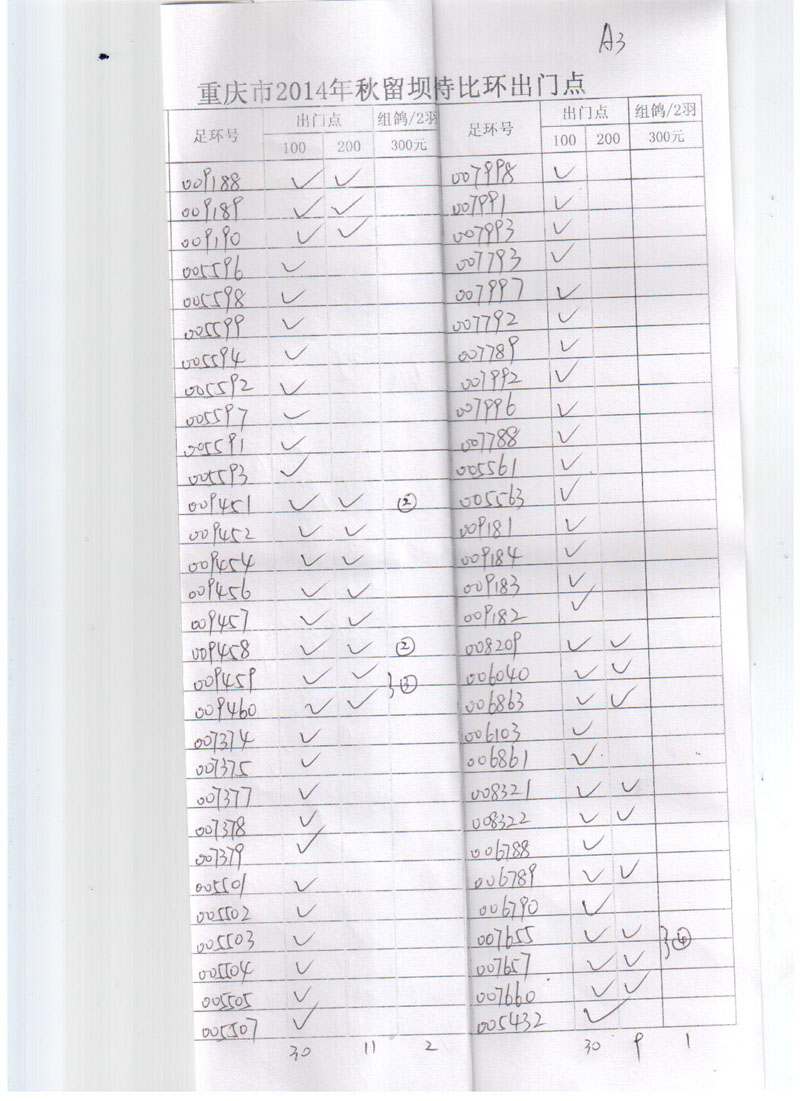 A3
重庆市2014年秋留坝特比环出门点
足环号 出门点 组鸽/2羽 足环号 出门点 组鸽/2羽
100 200 300元 100 200 300元
009188 ✓ ✓ 007998 ✓
009189 ✓ ✓ 007991 ✓
009190 ✓ ✓ 007993 ✓
005596 ✓ 007793 ✓
005598 ✓ 007997 ✓
005599 ✓ 007792 ✓
005594 ✓ 007789 ✓
005592 ✓ 007992 ✓
005597 ✓ 007996 ✓
005591 ✓ 007788 ✓
005593 ✓ 005561 ✓
009451 ✓ ✓ ② 005563 ✓
009452 ✓ ✓ 009181 ✓
009454 ✓ ✓ 009184 ✓
009456 ✓ ✓ 009183 ✓
009457 ✓ ✓ 009182 ✓
009458 ✓ ✓ ② 008209 ✓ ✓
009459 ✓ ✓ 006040 ✓ ✓
009460 ✓ ✓ 006863 ✓ ✓
007374 ✓ 006103 ✓
007375 ✓ 006861 ✓
007377 ✓ 008321 ✓ ✓
007378 ✓ 008322 ✓ ✓
007379 ✓ 006788 ✓
005501 ✓ 006789 ✓ ✓
005502 ✓ 006790 ✓
005503 ✓ 007655 ✓ ✓
005504 ✓ 007657 ✓ ✓
005505 ✓ 007660 ✓ ✓
005507 ✓ 005432 ✓
30 11 2 30 9 1